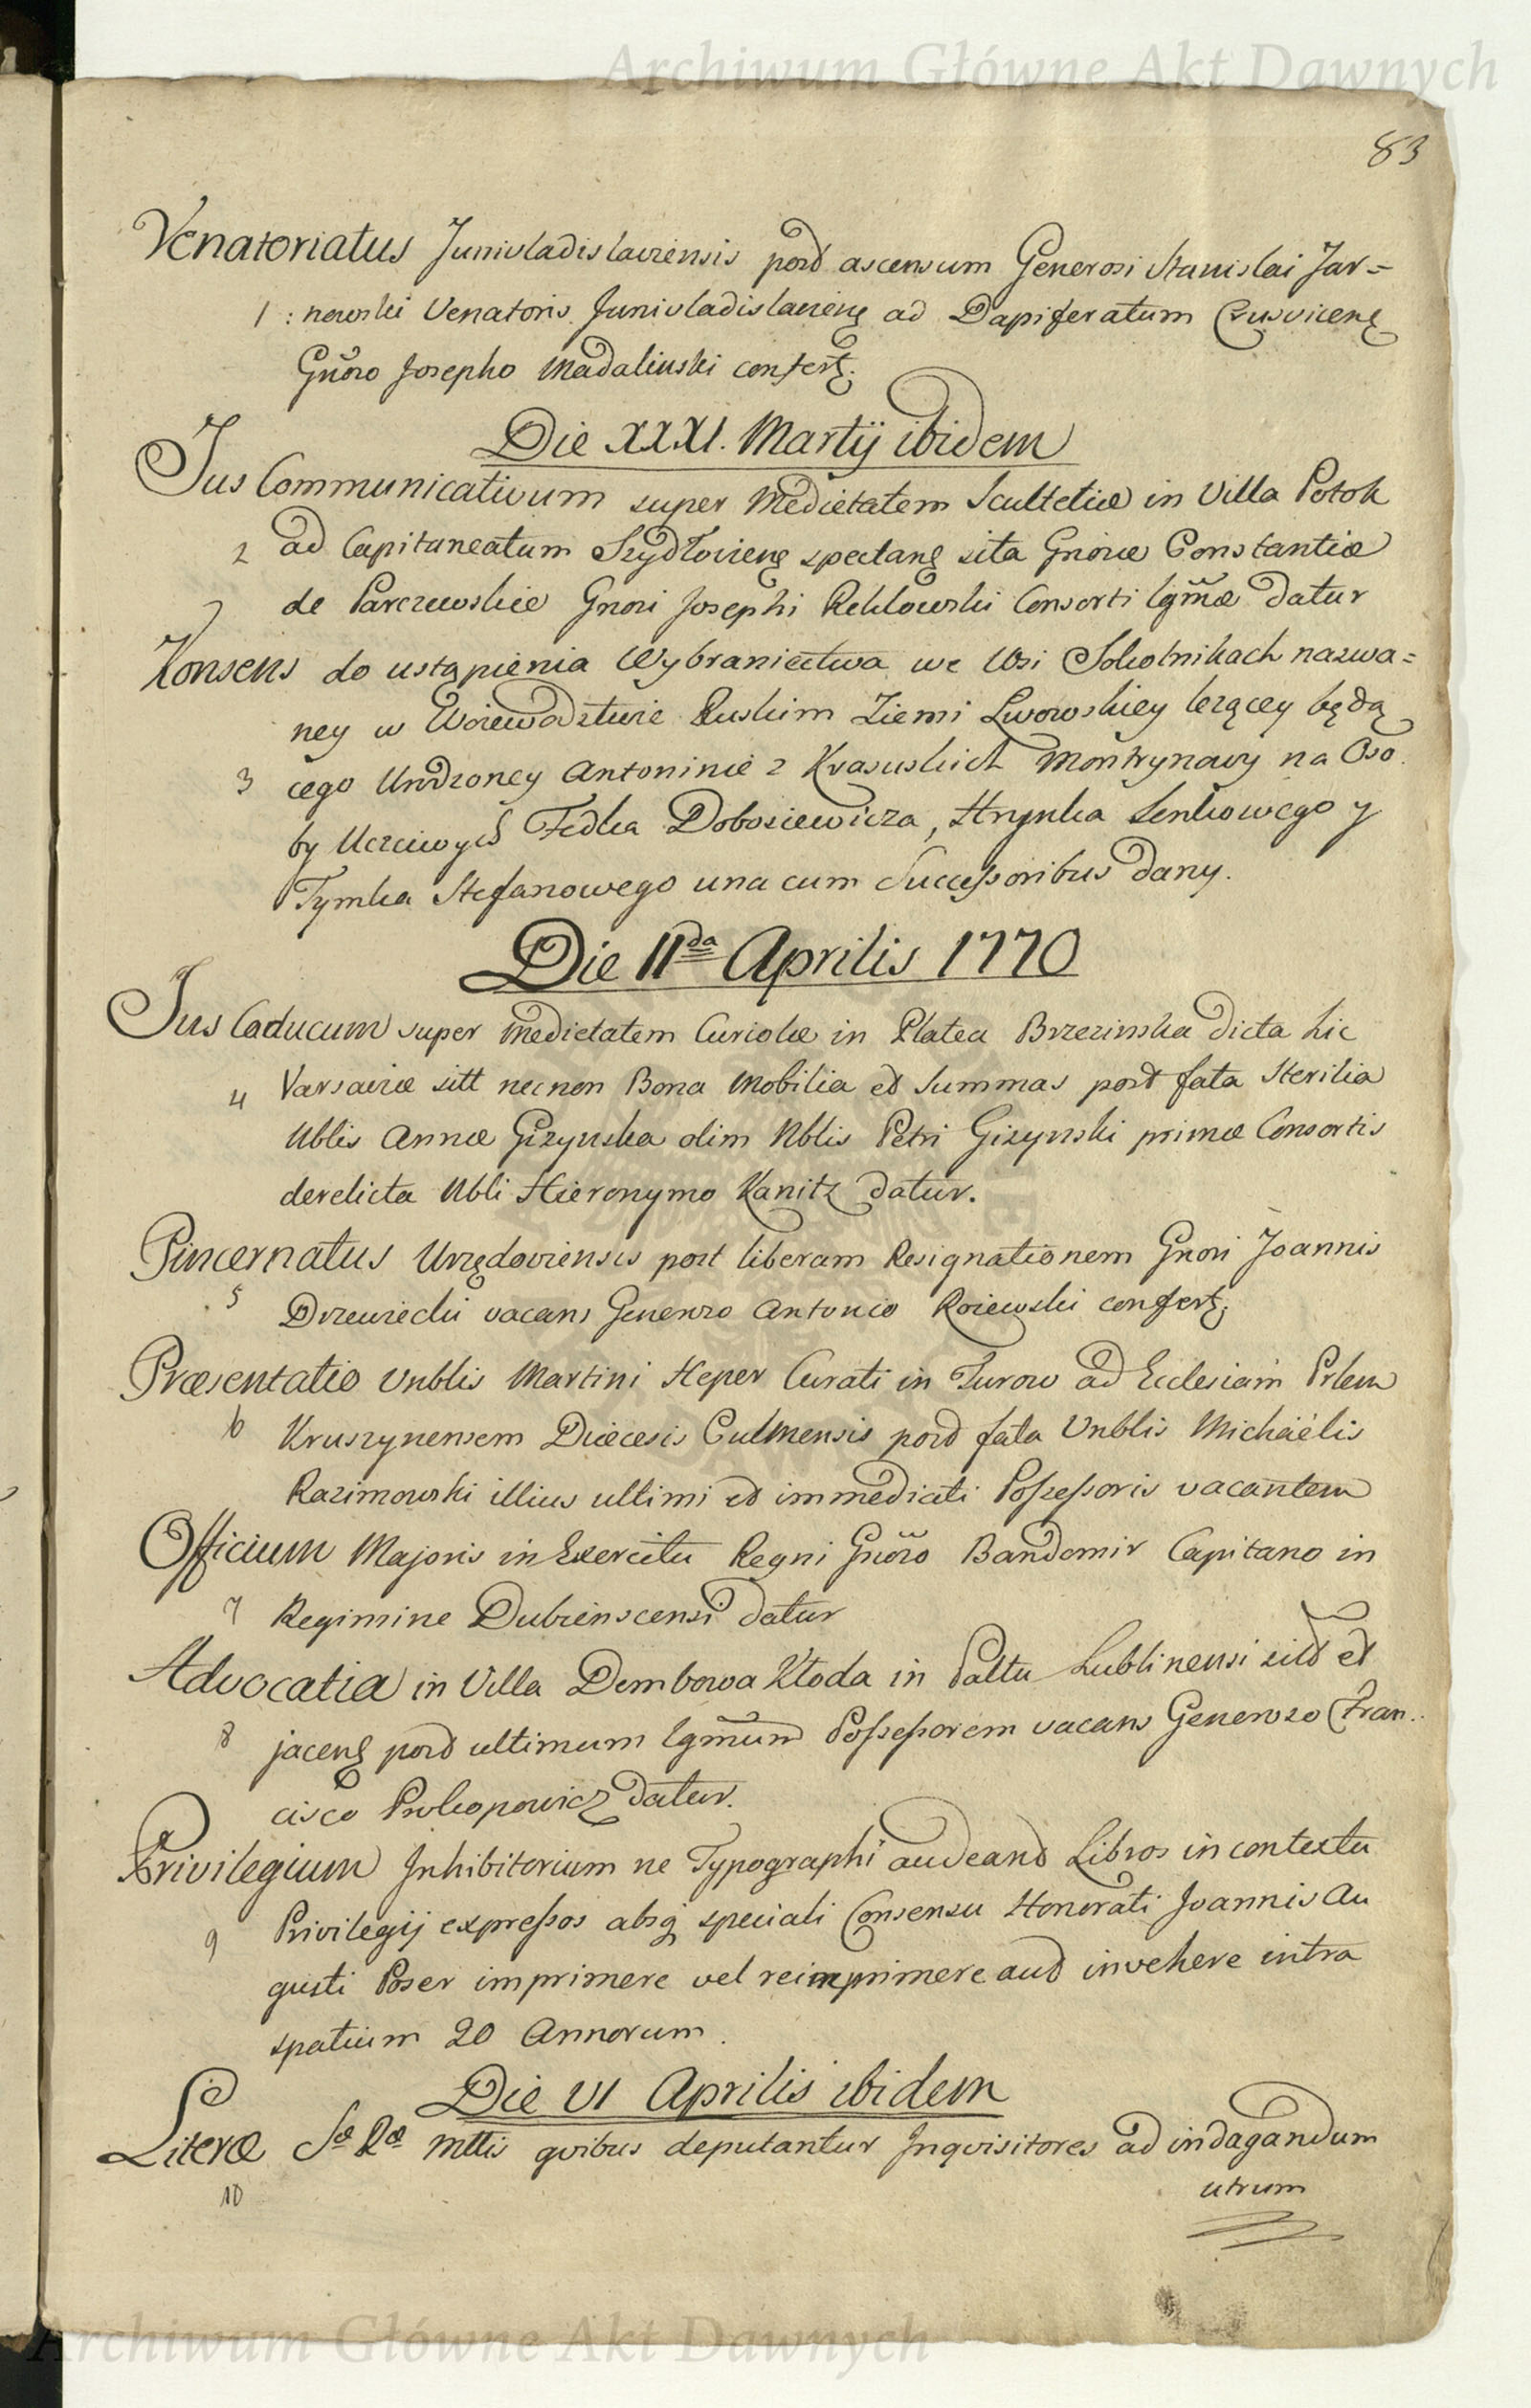 Archiwum Główne Akt Dawnych
83
Venatoriatus Junivladislaviensis post ascensum Generosi Stanislai Jar=
1 : nowski Venatoris Junivladislavienę ad Dapiferatum Crusvicenę
Gñoso Josepho Madalinski confertę.
Die XXXI. Martij ibidem
Jus Communicativum super Medietatem Scultetiæ in Villa Potok
2 ad Capitaneatum Szydłovienę spectanę sita Gnosæ Constantiæ
de Parczewskie Gnosi Josephi Reklowski Consorti lgm̃æ datur
Konsens do ustąpienia Wybraniectwa we Wsi Sokolnikach nazwa=
ney w Woiewodztwie Ruskim Ziemi Lwowskiey lezącey będą
3 cego Urodzoney Antoninie z Krasuskich Montrynowy na Oso
by Uczciwych Fedka Dobosiewicza, Hrynka Senkowego y
Tymka Stefanowego una cum Successoribus dany.
Die IIda Aprilis 1770
Jus Caducum super Medietatem Curiolæ in Platea Brzezinska dicta hic
4 Varsaviæ sitt necnon Bona Mobilia et Summas post fata Sterilia
Nblis Annæ Gizynska olim Nblis Petri Gizynski primæ Consortis
derelicta Nbli Hieronymo Kanitz datur.
Pincernatus Urzędoviensis post liberam Resignationem Gnosi Joannis
5 Drzewiecki vacans Generoso Antonio Roiewski confertę.
Præsentatio Vnblis Martini Heper Curati in Turow ad Ecclesiam Prlem
6 Kruszynensem Diæcesis Culmensis post fata Vnblis Michaelis
Razimowski illius ultimi et immediati Possessoris vacantem
Officium Majoris in Exercitu Regni Gñoso Bandomir Capitano in
7 Regimine Dubienscensi datur
Advocatia in Villa Dembowa Kłoda in Palttu Lublinensi sitt et
8 jacenę post ultimum lgm̃um Possessorem vacans Generoso Fran..
cisco Prokopowicz datur.
Privilegium Inhibitorium ne Typographi audeant Libros in contextu
9 Privilegij expressos absq speciali Consensu Honorati Joannis Au
gusti Poser imprimere vel reimprimere aut invehere intra
spatium 20 Annorum.
Die VI Aprilis ibidem
Literæ Sæ Ræ Mttis quibus deputantur Inqvisitores ad indagandum
10
utrum
Archiwum Główne Akt Dawnych